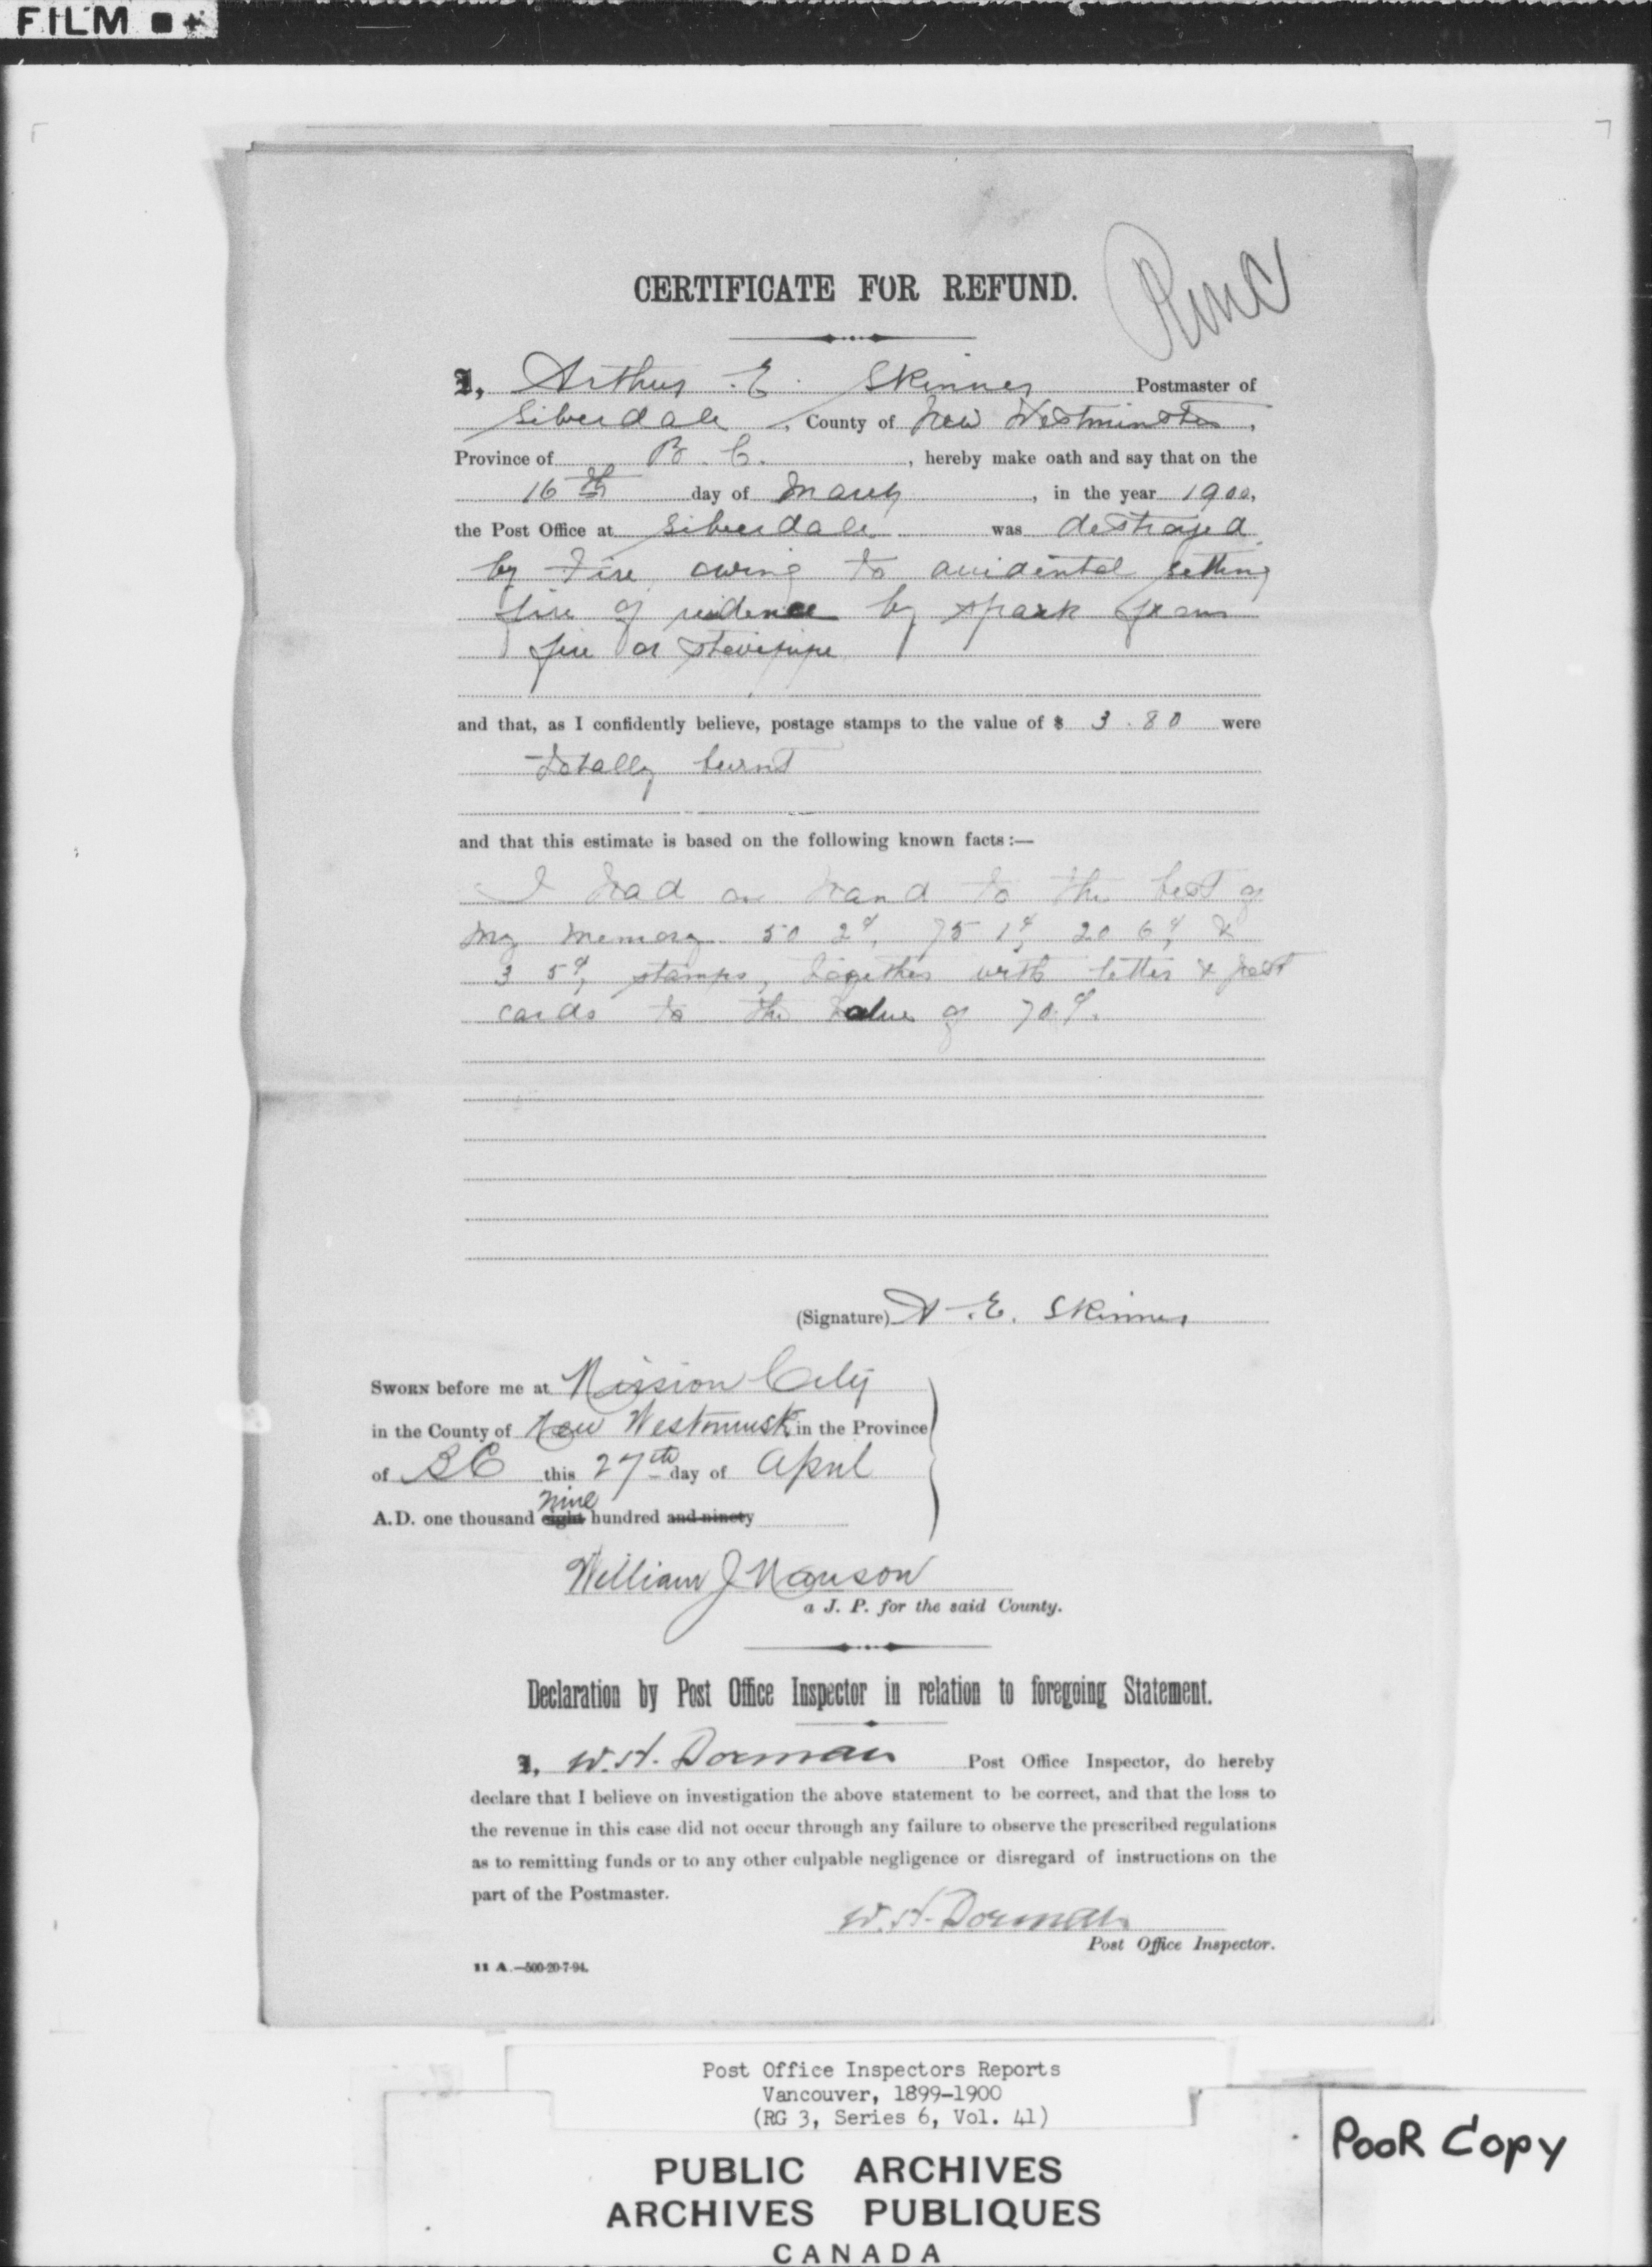 FILM
CERTIFICATE FOR REFUND.
I, Arthur E. Skinner Postmaster of
Silverdale, County of New Westminster,
Province of B. C., hereby make oath and say that on the
16th day of March, in the year 1900,
the Post Office at Silverdale was destroyed
by Fire, owing to accidental setting
fire of residence by spark from
fire or stovepipe
and that, as I confidently believe, postage stamps to the value of $ 3.80 were
totally burnt
and that this estimate is based on the following known facts:—
I had on hand to the best of
my memory 50 2¢, 75 1¢, 20 6¢, &
3 5¢, stamps, together with letter & post
cards to the value of 70¢.
(Signature) A. E. Skinner
SWORN before me at Mission City
in the County of New Westminstr in the Province
of BC this 27th day of April
nine
A.D. one thousand eight hundred and ninety
William J Manson
a J. P. for the said County.
Declaration by Post Office Inspector in relation to foregoing Statement.
I, W. H. Dorman Post Office Inspector, do hereby
declare that I believe on investigation the above statement to be correct, and that the loss to
the revenue in this case did not occur through any failure to observe the prescribed regulations
as to remitting funds or to any other culpable negligence or disregard of instructions on the
part of the Postmaster.
W. H. Dorman
Post Office Inspector.
11 A.—500-20-7-94.
Post Office Inspectors Reports
Vancouver, 1899-1900
(RG 3, Series 6, Vol. 41)
PooR Copy
PUBLIC ARCHIVES
ARCHIVES PUBLIQUES
CANADA